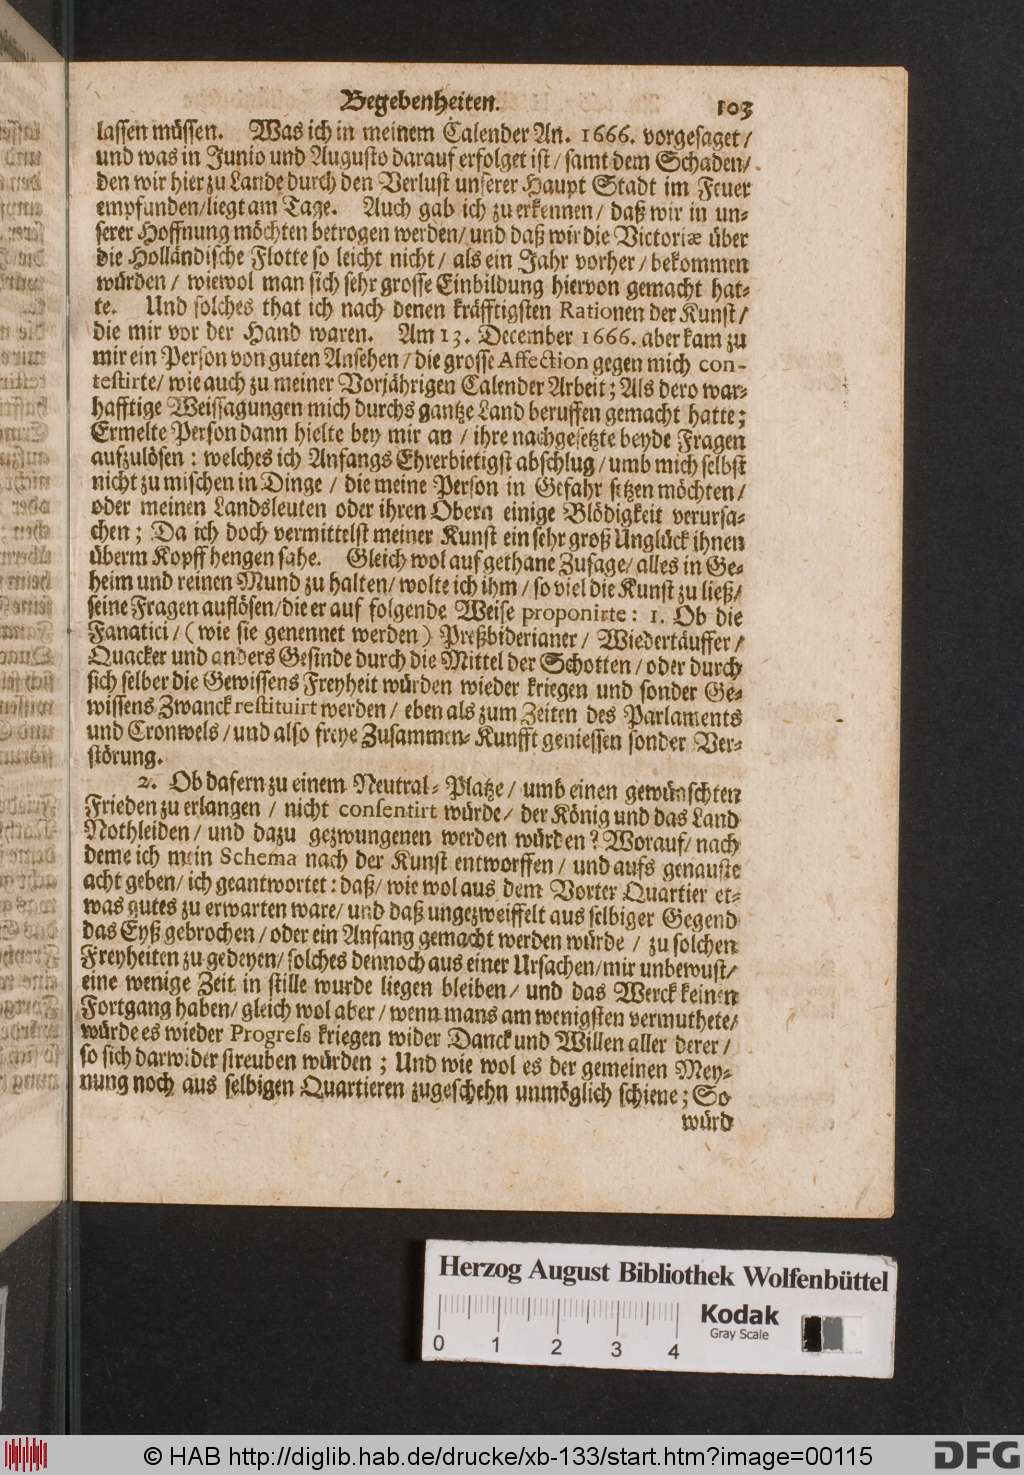 Begebenheiten. 103
lassen müssen. Was ich in meinem Calender An. 1666. vorgesaget /
und was in Junio und Augusto darauf erfolget ist / samt dem Schaden /
den wir hier zu Lande durch den Verlust unserer Haupt Stadt im Feuer
empfunden / liegt am Tage. Auch gab ich zu erkennen / daß wir in un-
serer Hoffnung möchten betrogen werden / und daß wir die Victoriæ über
die Holländische Flotte so leicht nicht / als ein Jahr vorher / bekommen
würden / wiewol man sich sehr grosse Einbildung hiervon gemacht hat-
te. Und solches that ich nach denen kräfftigsten Rationen der Kunst /
die mir vor der Hand waren. Am 13. December 1666. aber kam zu
mir ein Person von guten Ansehen / die grosse Affection gegen mich con-
testirte / wie auch zu meiner Vorjährigen Calender Arbeit; Als dero war-
hafftige Weissagungen mich durchs gantze Land beruffen gemacht hatte;
Ermelte Person dann hielte bey mir an / ihre nachgesetzte beyde Fragen
aufzulösen: welches ich Anfangs Ehrerbietigst abschlug / umb mich selbst
nicht zu mischen in Dinge / die meine Person in Gefahr setzen möchten /
oder meinen Landsleuten oder ihren Obern einige Blödigkeit verursa-
chen; Da ich doch vermittelst meiner Kunst ein sehr groß Unglück ihnen
überm Kopff hengen sahe. Gleich wol auf gethane Zusage / alles in Ge-
heim und reinen Mund zu halten / wolte ich ihm / so viel die Kunst zu ließ /
seine Fragen auflösen / die er auf folgende Weise proponirte: 1. Ob die
Fanatici / (wie sie genennet werden) Preßbiderianer / Wiedertäuffer /
Quacker und anders Gesinde durch die Mittel der Schotten / oder durch
sich selber die Gewissens Freyheit würden wieder kriegen und sonder Ge-
wissens Zwanck restituirt werden / eben als zum Zeiten des Parlaments
und Cronwels / und also freye Zusammen-Kunfft geniessen sonder Ver-
störung.
2. Ob dafern zu einem Neutral-Platze / umb einen gewünschten
Frieden zu erlangen / nicht consentirt würde / der König und das Land
Nothleiden / und dazu gezwungenen werden würden? Worauf / nach
deme ich mein Schema nach der Kunst entworffen / und aufs genauste
acht geben / ich geantwortet: daß / wie wol aus dem Vorter Quartier et-
was gutes zu erwarten ware / und daß ungezweiffelt aus selbiger Gegend
das Eyß gebrochen / oder ein Anfang gemacht werden würde / zu solchen
Freyheiten zu gedeyen / solches dennoch aus einer Ursachen / mir unbewust /
eine wenige Zeit in stille wurde liegen bleiben / und das Werck keinen
Fortgang haben / gleich wol aber / wenn mans am wenigsten vermuthete /
würde es wieder Progress kriegen wider Danck und Willen aller derer /
so sich darwider streuben würden; Und wie wol es der gemeinen Mey-
nung noch aus selbigen Quartieren zugeschehn unmöglich schiene; So
würd
Herzog August Bibliothek Wolfenbüttel
Kodak
Gray Scale
0 1 2 3 4
© HAB http://diglib.hab.de/drucke/xb-133/start.htm?image=00115
DFG